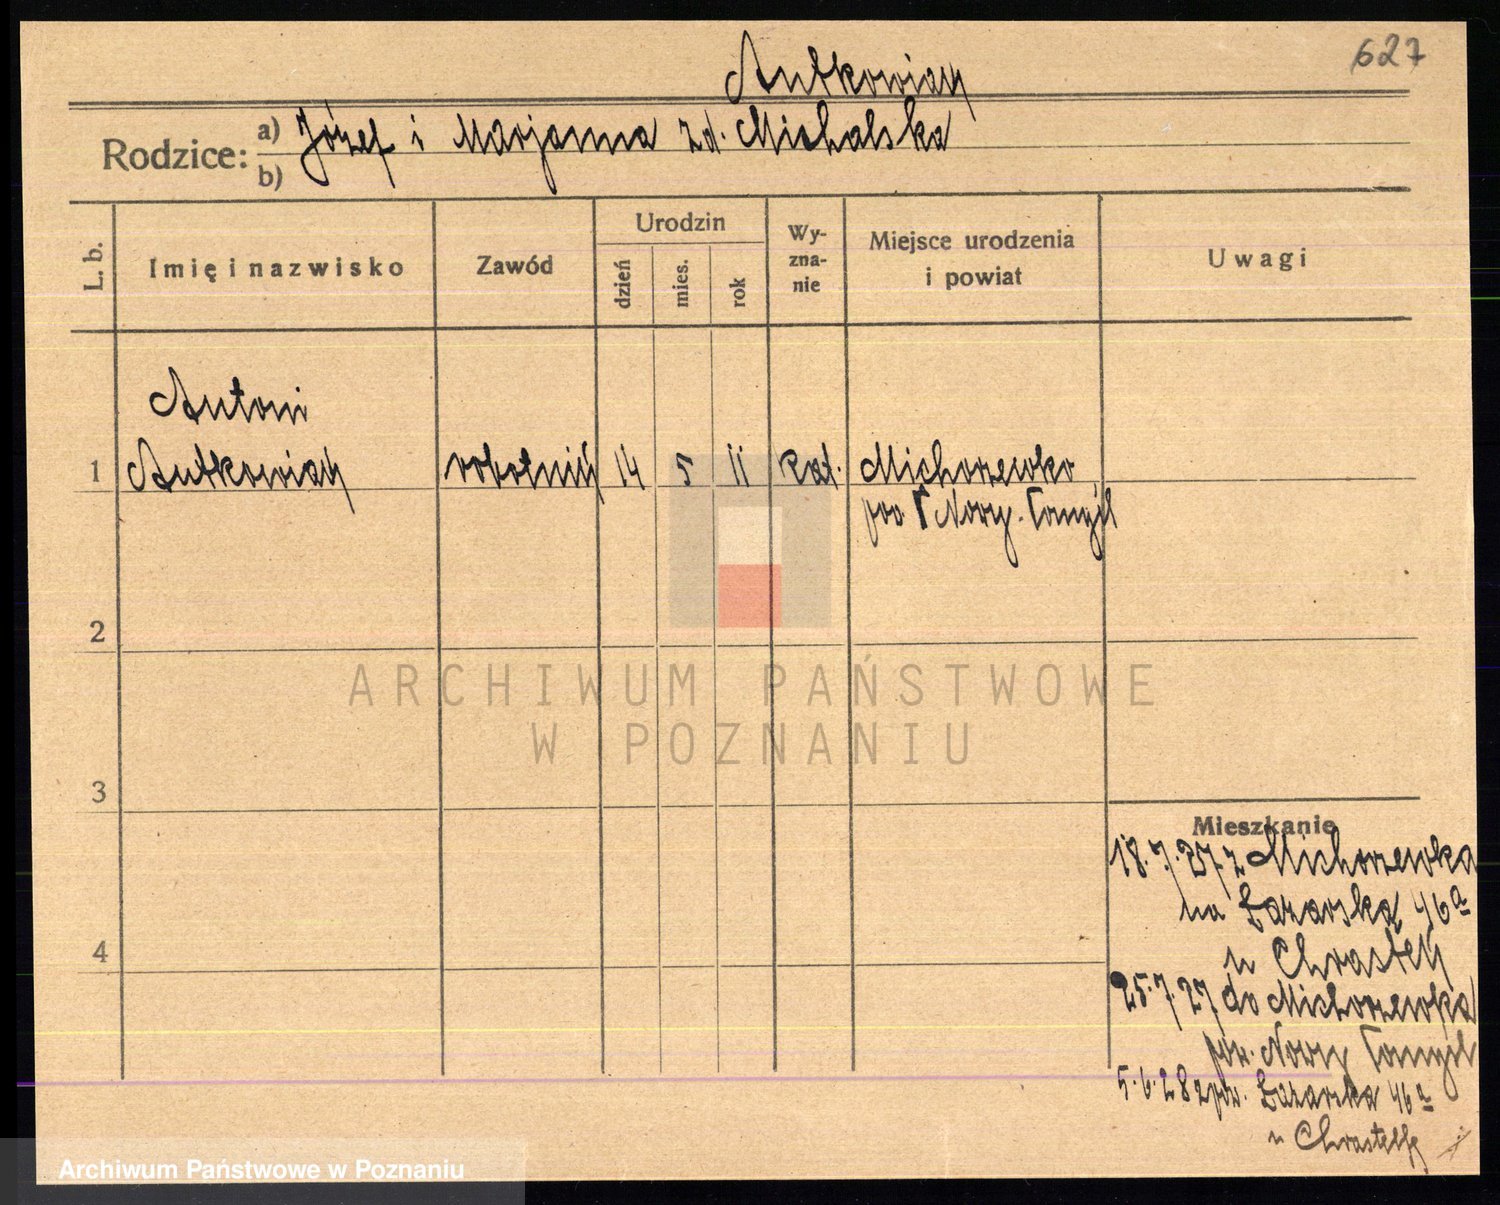 627
Antkowiak
Rodzice: a) Józef i Marjanna zd. Michalska
b)
L. b.
Imię i nazwisko
Zawód
Urodzin
dzień
mies.
rok
Wy-
zna-
nie
Miejsce urodzenia
i powiat
Uwagi
Antoni
1 Antkowiak robotnik 14 5 11 kat. Michorzewko
pow. Nowy-Tomyśl
2
ARCHIWUM PAŃSTWOWE
W POZNANIU
3
Mieszkanie
18.7.27 z Michorzewka
na Łazarska 46a
u Chrastek
4
25.7.27 do Michorzewka
pow. Nowy Tomyśl
5.6.28 Łazarska 46a
u
Archiwum Państwowe w Poznaniu